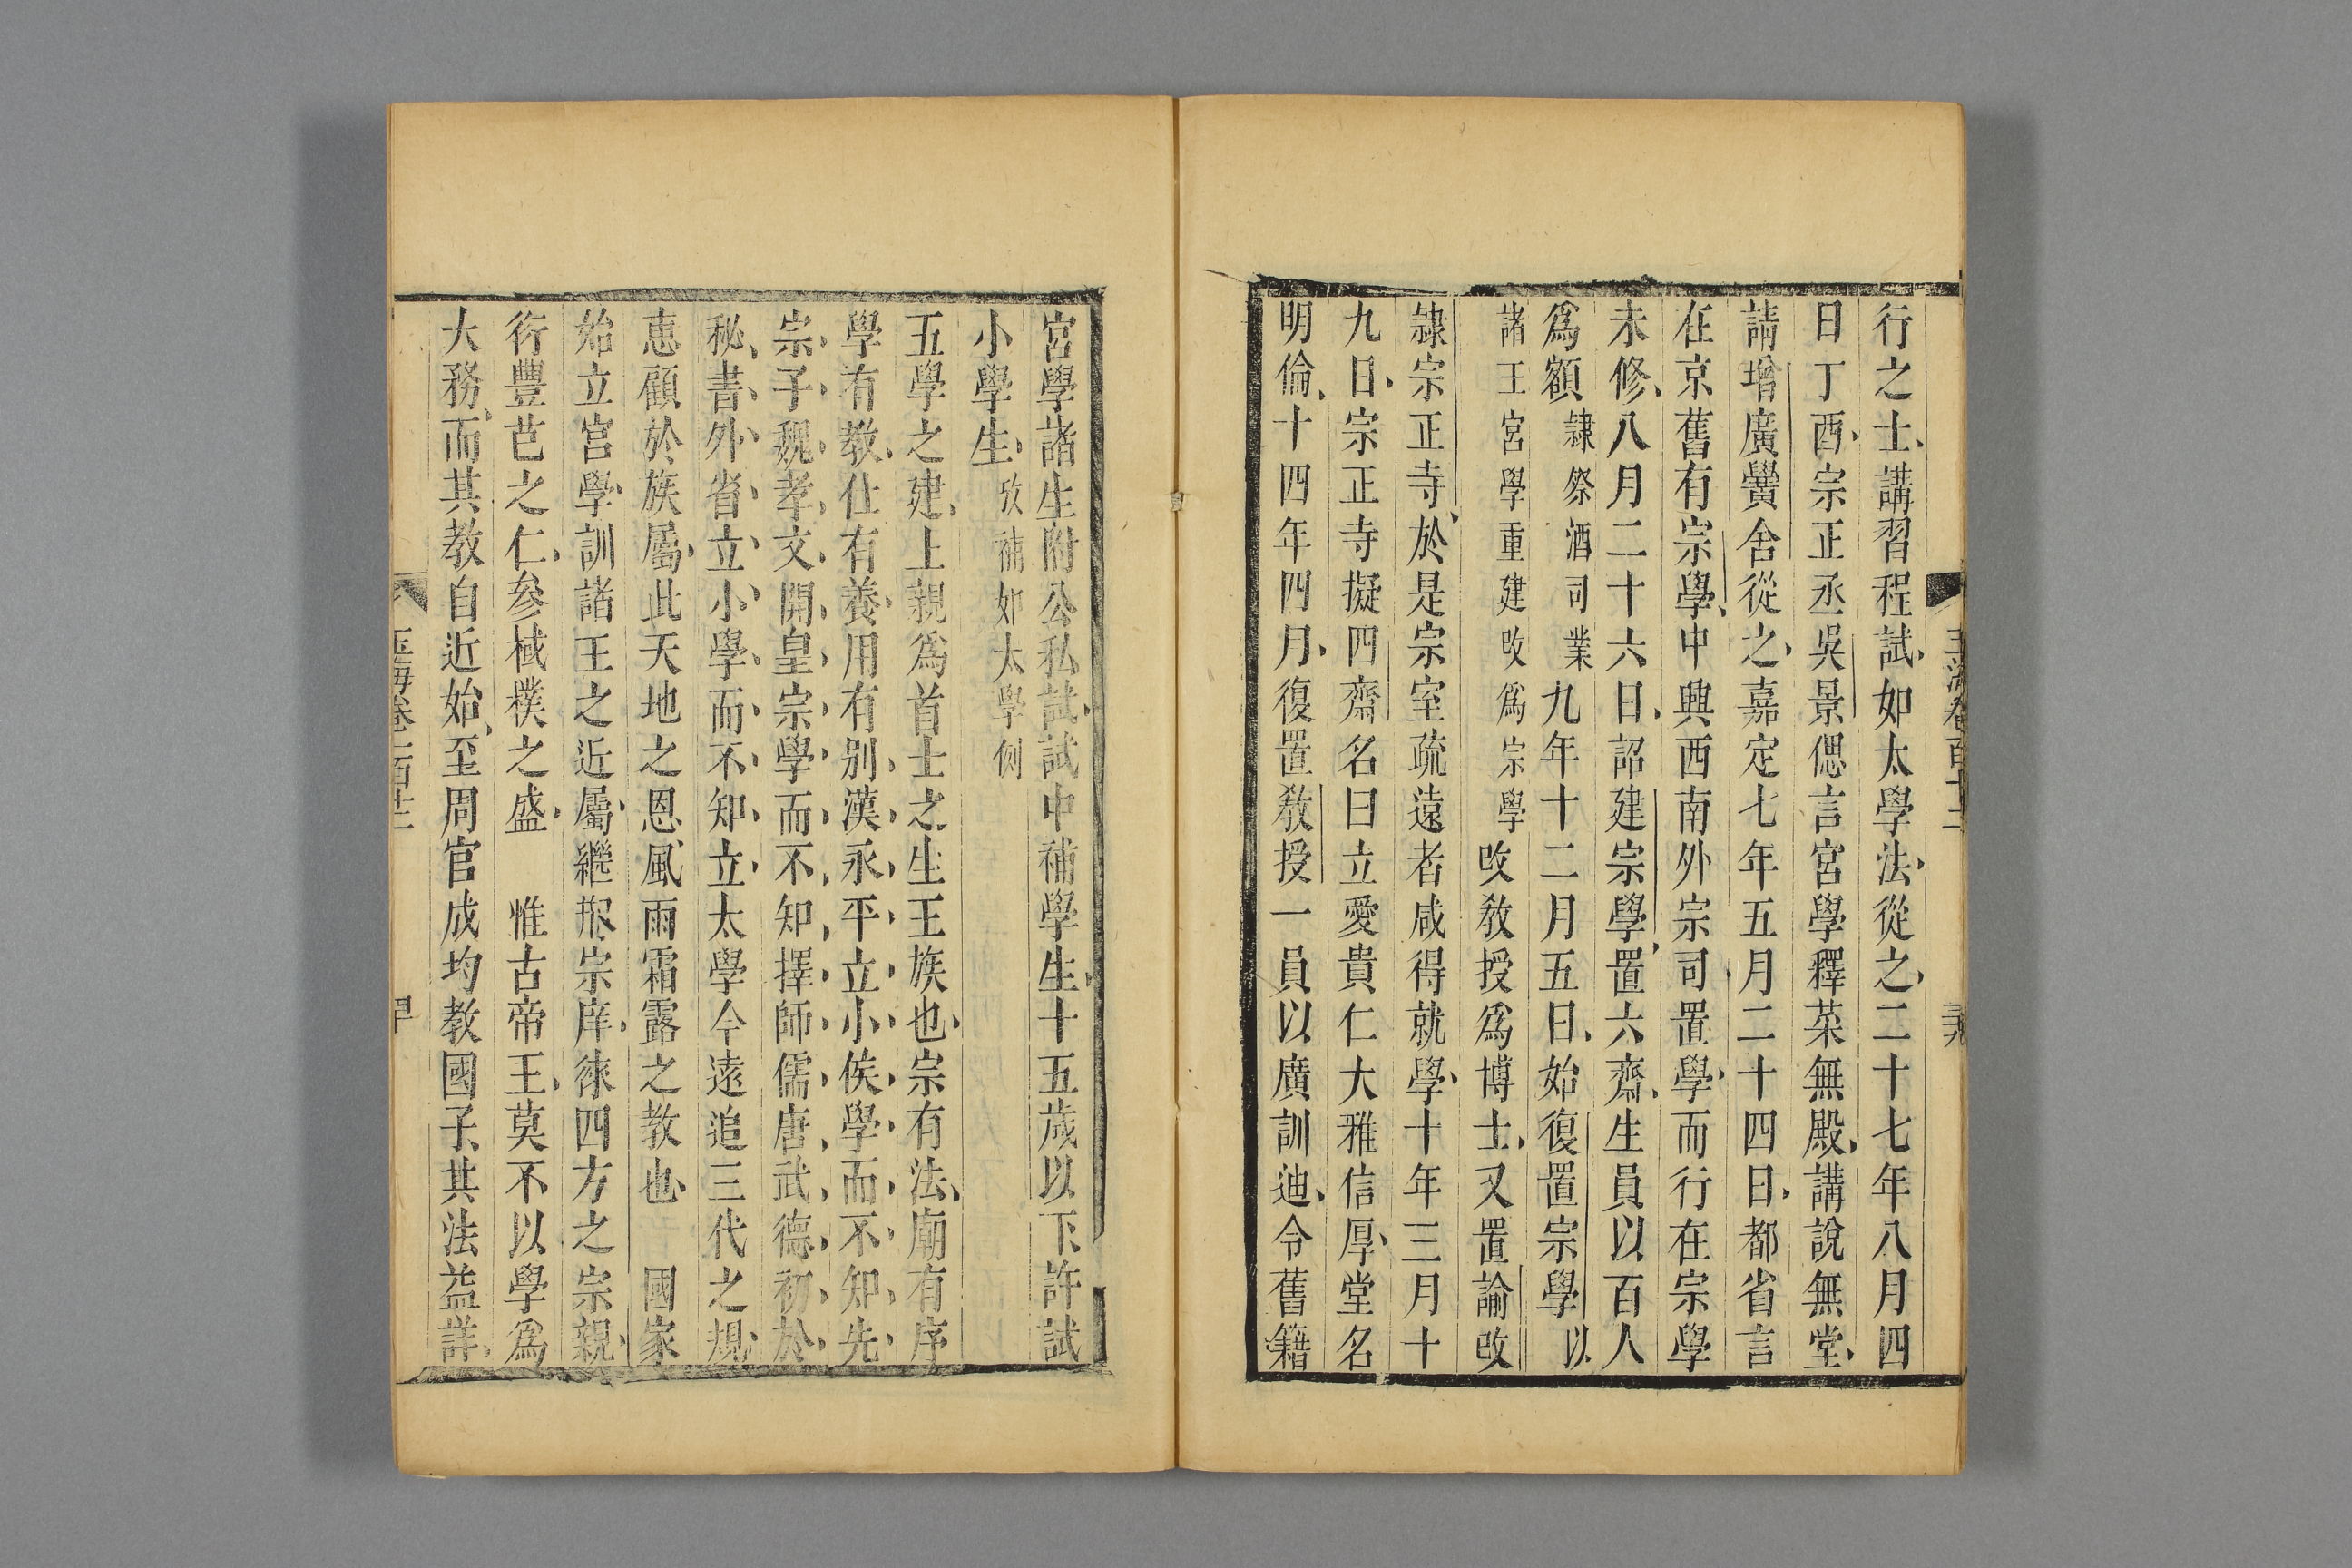 行之士講習程試如太學法從之二十七年八月四
日丁酉宗正丞吳景偲言宮學釋菜無殿講說無堂
請增廣黌舍從之嘉定七年五月二十四日都省言
在京舊有宗學中興西南外宗司置學而行在宗學
未修八月二十六日詔建宗學置六齋生員以百人
爲額隸祭酒司業九年十二月五日始復置宗學以
諸王宮學重建改爲宗學改教授爲博士又置諭改
隸宗正寺於是宗室疏遠者咸得就學十年三月十
九日宗正寺擬四齋名曰立愛貴仁大雅信厚堂名
明倫十四年四月復置教授一員以廣訓迪令舊籍
宮學諸生附公私試試中補學生十五歲以下許試
小學生攷補如太學例
五學之建上親爲首士之生王族也宗有法廟有序
學有教仕有養用有別漢永平立小侯學而不知先
宗子魏孝文開皇宗學而不知擇師儒唐武德初於
秘書外省立小學而不知立太學今遠追三代之規
惠顧於族屬此天地之恩風雨霜露之教也　國家
始立宮學訓諸王之近屬繼掀宗庠徠四方之宗親
衍豐芑之仁參棫樸之盛　惟古帝王莫不以學爲
大務而其教自近始至周官成均教國子其法益詳